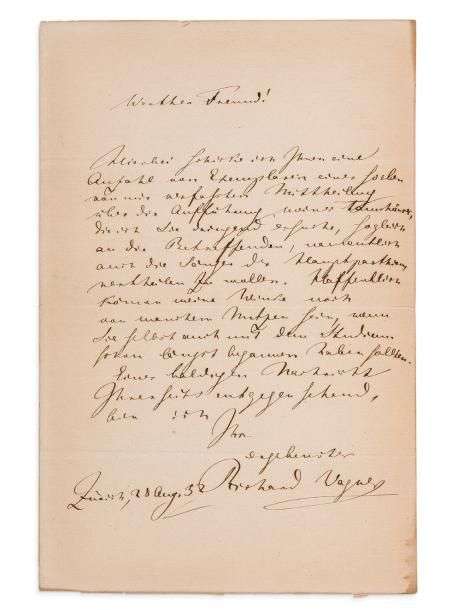 Werther Freund!
Hierbei schicke ich Ihnen eine
Anzahl von Exemplaren einer soeben
von mir verfassten Mittheilung
über die Aufführung meines Tannhäuser,
die ich Sie dringend ersuche, sogleich
an die Betreffenden, namentlich
auch die Sänger der Hauptparthien,
vertheilen zu wollen. Hoffentlich
können meine Winke noch
von manchem Nutzen sein, wenn
Sie selbst auch mit dem Studium
schon längst begonnen haben sollten.
Einer baldigen Nachricht
Ihrerseits entgegen sehend,
bin ich
Ihr
ergebenster
Zürich, 28 Aug. 52 Richard Wagner